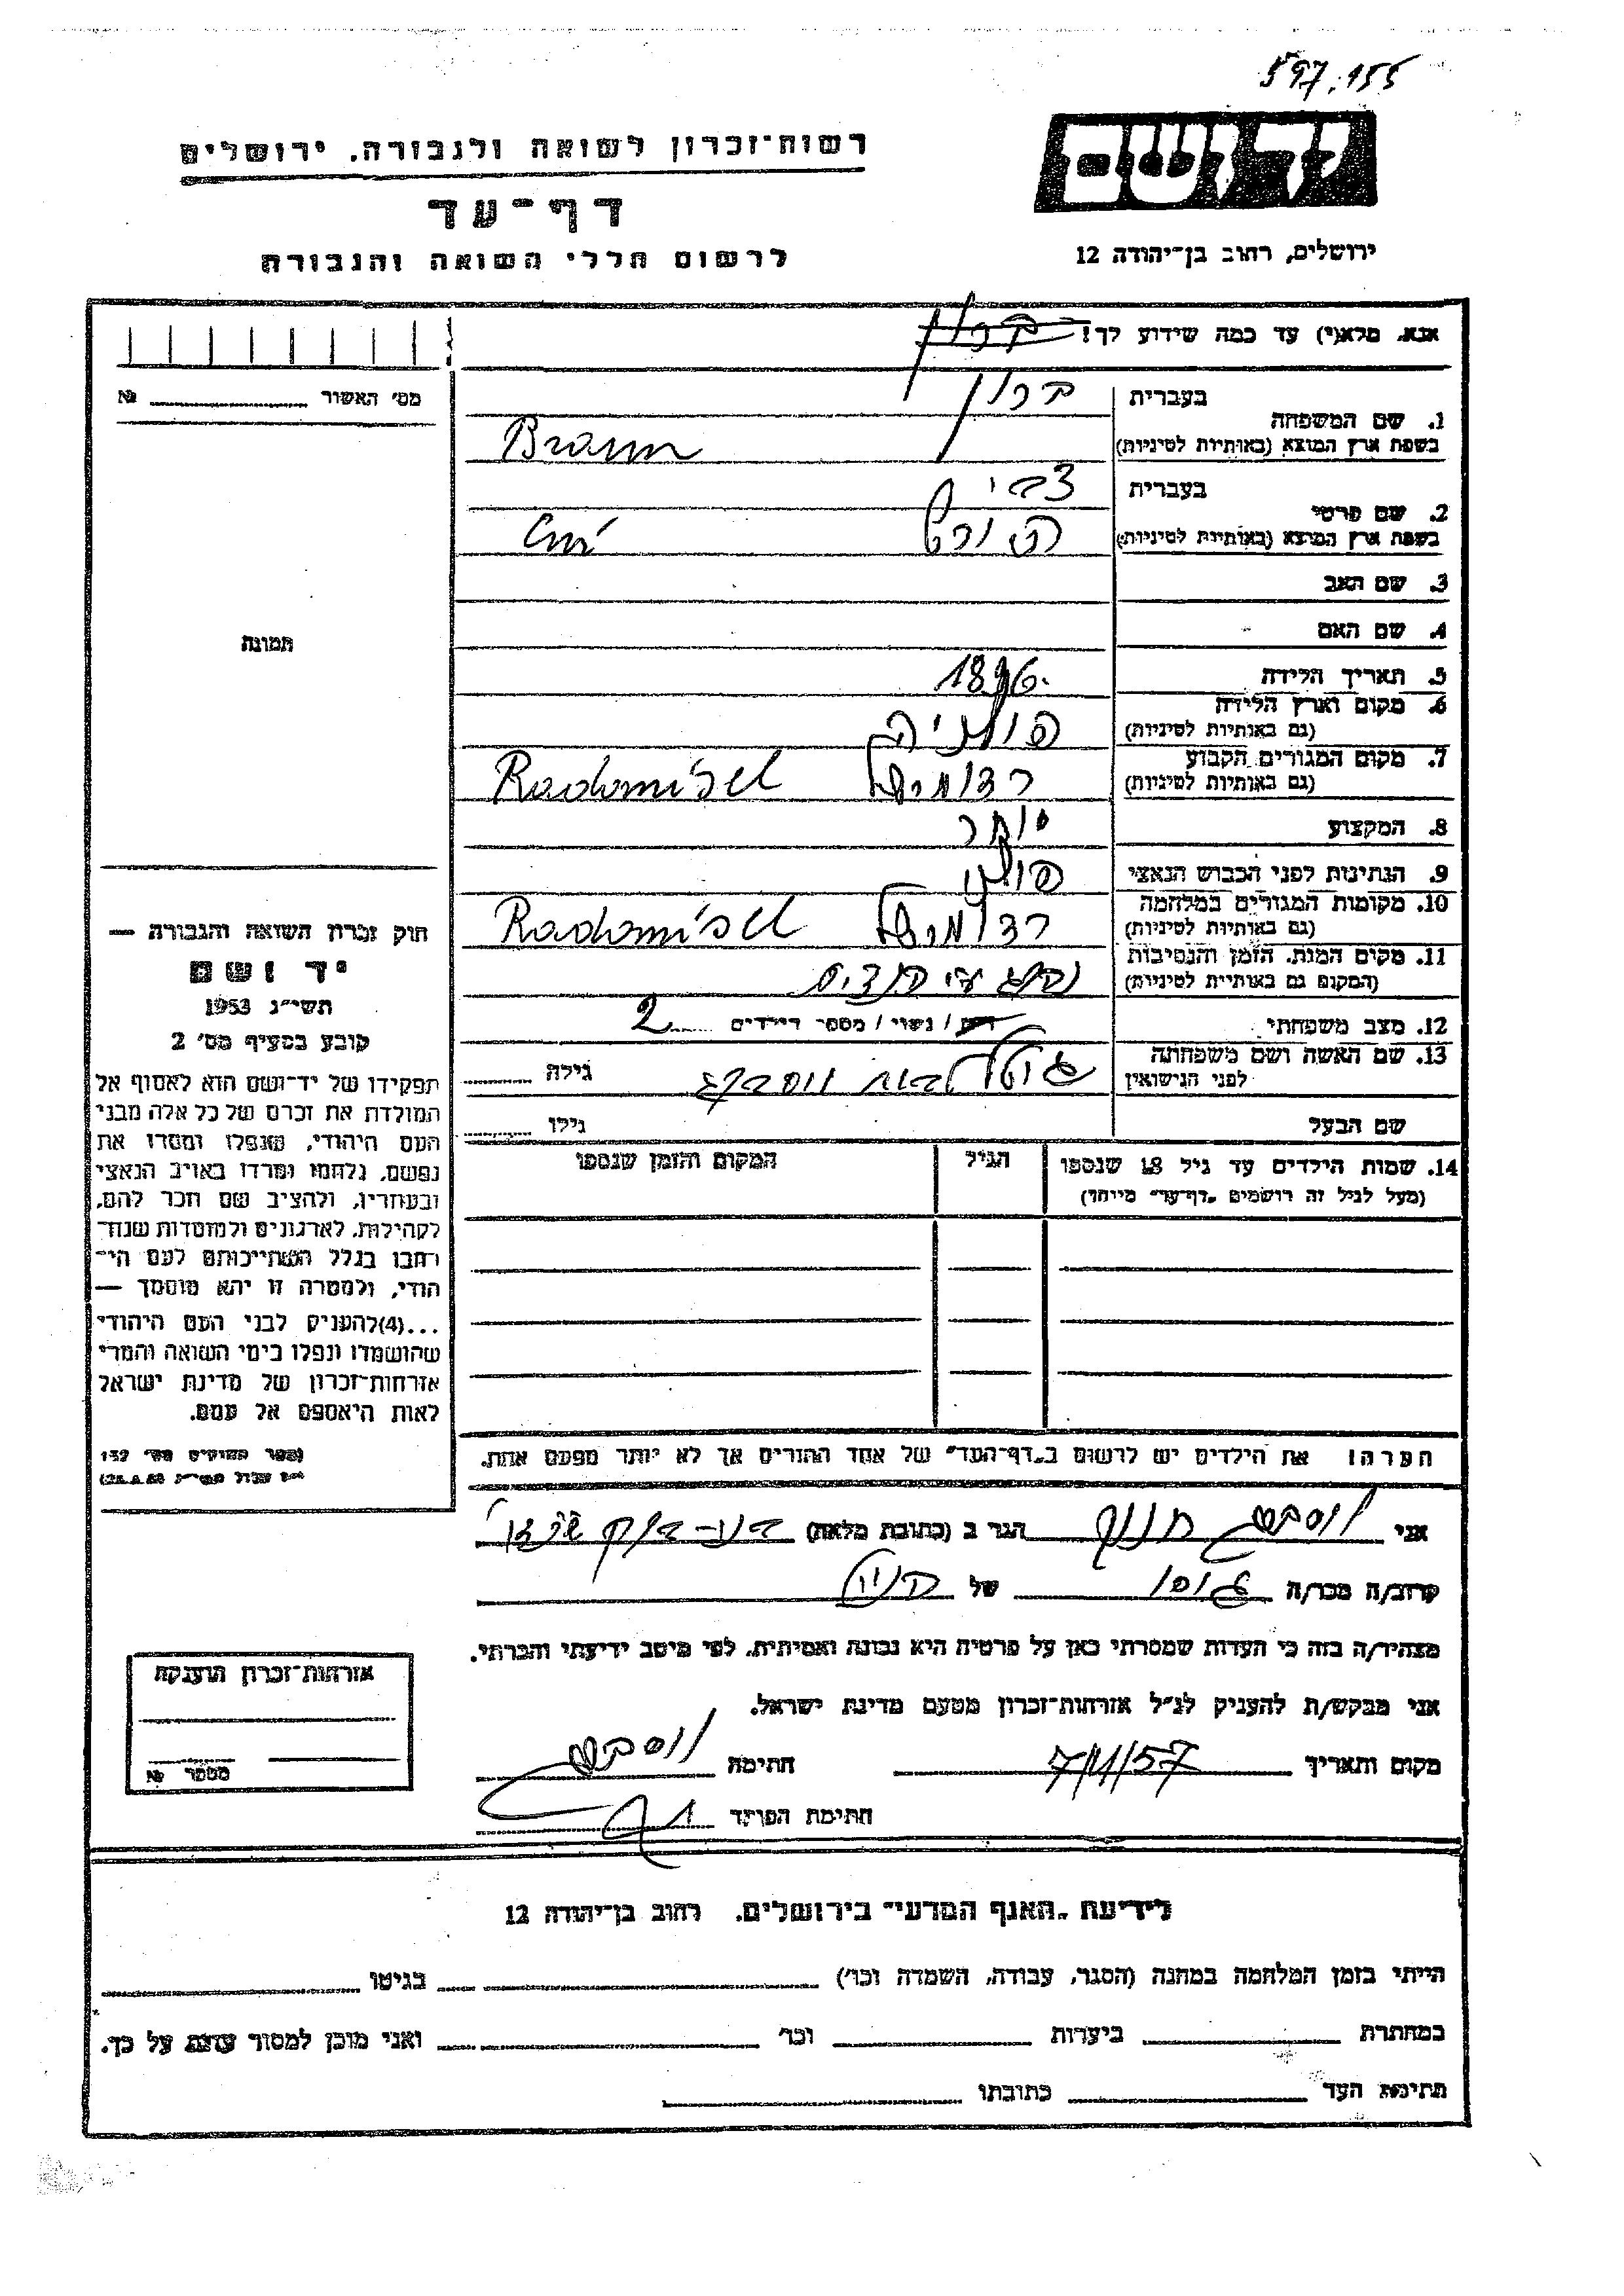 597.155
יד ושם
רשות־זכרון לשואה ולגבורה. ירושלים
דף־עד
לרשום חללי השואה והגבורה
ירושלים, רחוב בן־יהודה 12
אנא, מלא(י) עד כמה שידוע לך!
מס׳ האשור №
1. שם המשפחה
בעברית
בראון
בשפת ארץ המוצא (באותיות לטיניות)
Braun
2. שם פרטי
בעברית
צבי
בשפת ארץ המוצא (באותיות לטיניות)
3. שם האב
4. שם האם
5. תאריך הלידה
1896.
6. מקום וארץ הלידה
(גם באותיות לטיניות)
פולניה
7. מקום המגורים הקבוע
(גם באותיות לטיניות)
Radomiśel
8. המקצוע
סוחר
9. הנתינות לפני הכבוש הנאצי
פולין
10. מקומות המגורים במלחמה
(גם באותיות לטיניות)
Radomiśel
11. מקום המות. הזמן והנסיבות
(המקום גם באותיות לטיניות)
12. מצב משפחתי
רווק / נשוי / מספר הילדים 2
13. שם האשה ושם משפחתה
לפני הנישואין
גילה
שם הבעל
גילו
14. שמות הילדים עד גיל 18 שנספו
(מעל לגיל זה רושמים „דף־עד״ מיוחד)
הגיל
המקום והזמן שנספו
הערה! את הילדים יש לרשום ב„דף־העד״ של אחד ההורים אך לא יותר מפעם אחת.
תמונה
חוק זכרון השואה והגבורה —
יד ושם
תשי״ג 1953
קובע בסעיף מס׳ 2
תפקידו של יד־ושם הוא לאסוף אל
המולדת את זכרם של כל אלה מבני
העם היהודי, שנפלו ומסרו את
נפשם, נלחמו ומרדו באויב הנאצי
ובעוזריו, ולהציב שם וזכר להם,
לקהילות, לארגונים ולמוסדות שנח־
רבו בגלל השתייכותם לעם הי־
הודי, ולמטרה זו יהא מוסמך —
...(4)להעניק לבני העם היהודי
שהושמדו ונפלו בימי השואה והמרי
אזרחות־זכרון של מדינת ישראל
לאות היאספם אל עמם.
(ספר החוקים מס׳ 132
אני הגר ב (כתובת מלאה)
קרוב/ה מכר/ה של
מצהיר/ה בזה כי העדות שמסרתי כאן על פרטיה היא נכונה ואמיתית, לפי מיטב ידיעתי והכרתי.
אני מבקש/ת להעניק לנ״ל אזרחות־זכרון מטעם מדינת ישראל.
מקום ותאריך 7/11/57 חתימה
חתימת הפוקד
אזרחות־זכרון הוענקה
מספר №
לידיעת „האגף המדעי״ בירושלים. רחוב בן־יהודה 12
הייתי בזמן המלחמה במחנה (הסגר, עבודה, השמדה וכו׳) בגיטו
במחתרת ביערות וכו׳ ואני מוכן למסור עדות על כך.
חתימת העד כתובתו